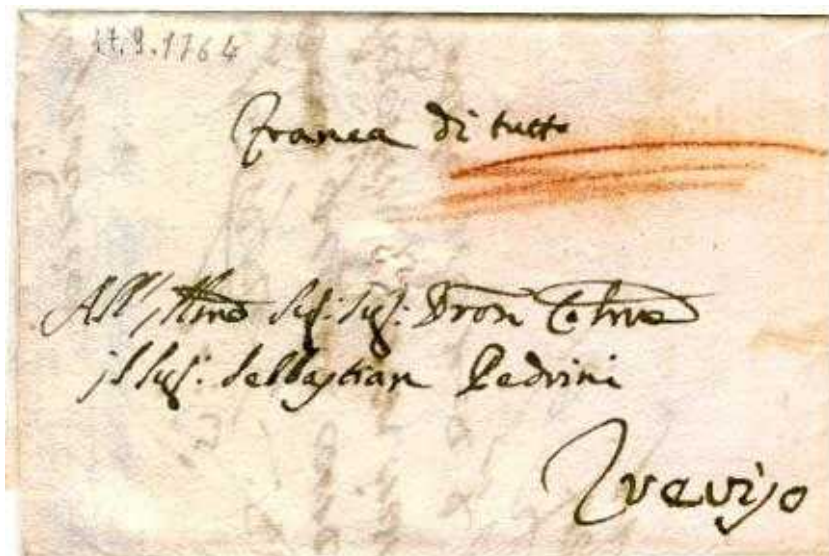 17.9.1764
Franca di tutto
All' Illmo Sig: Sig: Pron Colmo
il Sig: Sebastian Pedrini
Treviso